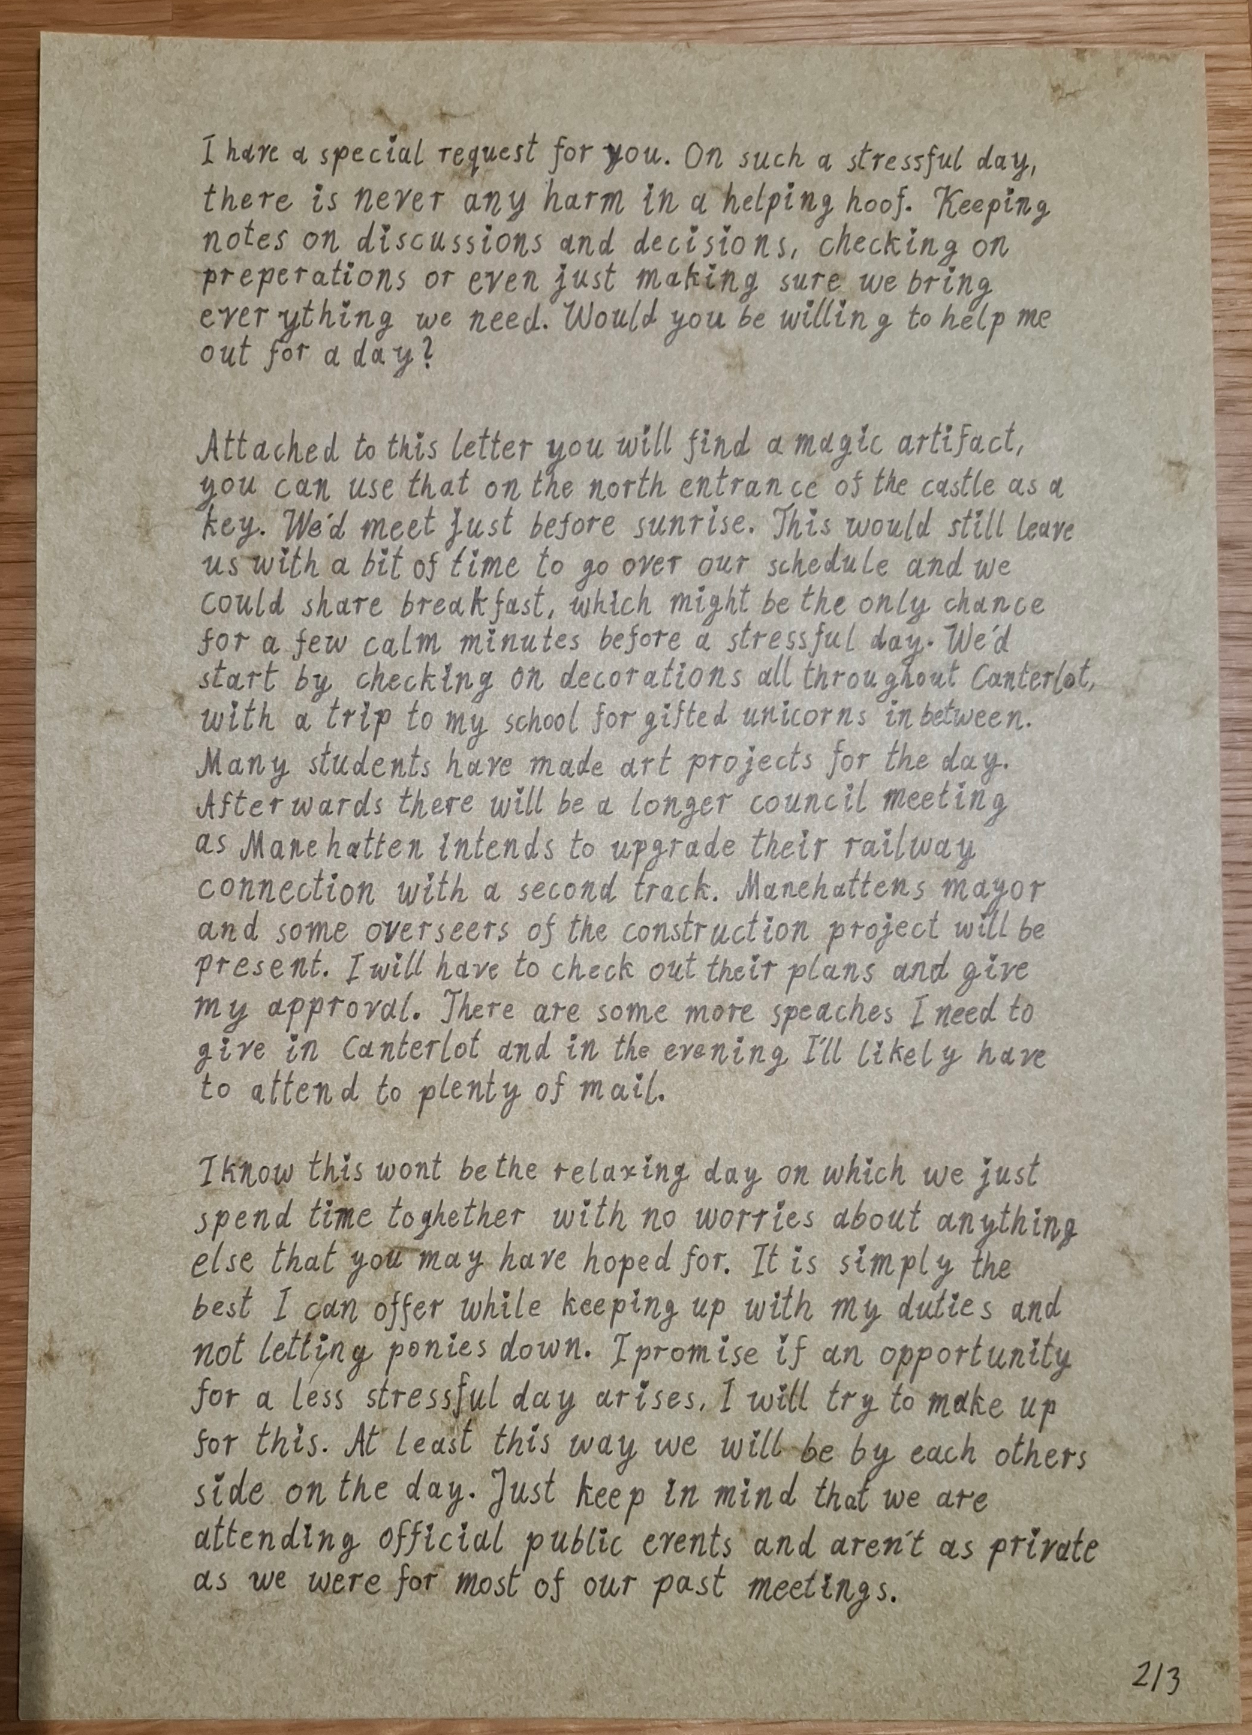 I have a special request for you. On such a stressful day,
there is never any harm in a helping hoof. Keeping
notes on discussions and decisions, checking on
preperations or even just making sure we bring
everything we need. Would you be willing to help me
out for a day?
Attached to this letter you will find a magic artifact,
you can use that on the north entrance of the castle as a
key. We'd meet just before sunrise. This would still leave
us with a bit of time to go over our schedule and we
could share breakfast, which might be the only chance
for a few calm minutes before a stressful day. We'd
start by checking on decorations all throughout Canterlot,
with a trip to my school for gifted unicorns in between.
Many students have made art projects for the day.
Afterwards there will be a longer council meeting
as Manehatten intends to upgrade their railway
connection with a second track. Manehattens mayor
and some overseers of the construction project will be
present. I will have to check out their plans and give
my approval. There are some more speaches I need to
give in Canterlot and in the evening I'll likely have
to attend to plenty of mail.
I know this wont be the relaxing day on which we just
spend time toghether with no worries about anything
else that you may have hoped for. It is simply the
best I can offer while keeping up with my duties and
not letting ponies down. I promise if an opportunity
for a less stressful day arises, I will try to make up
for this. At least this way we will be by each others
side on the day. Just keep in mind that we are
attending official public events and aren't as private
as we were for most of our past meetings.
2/3